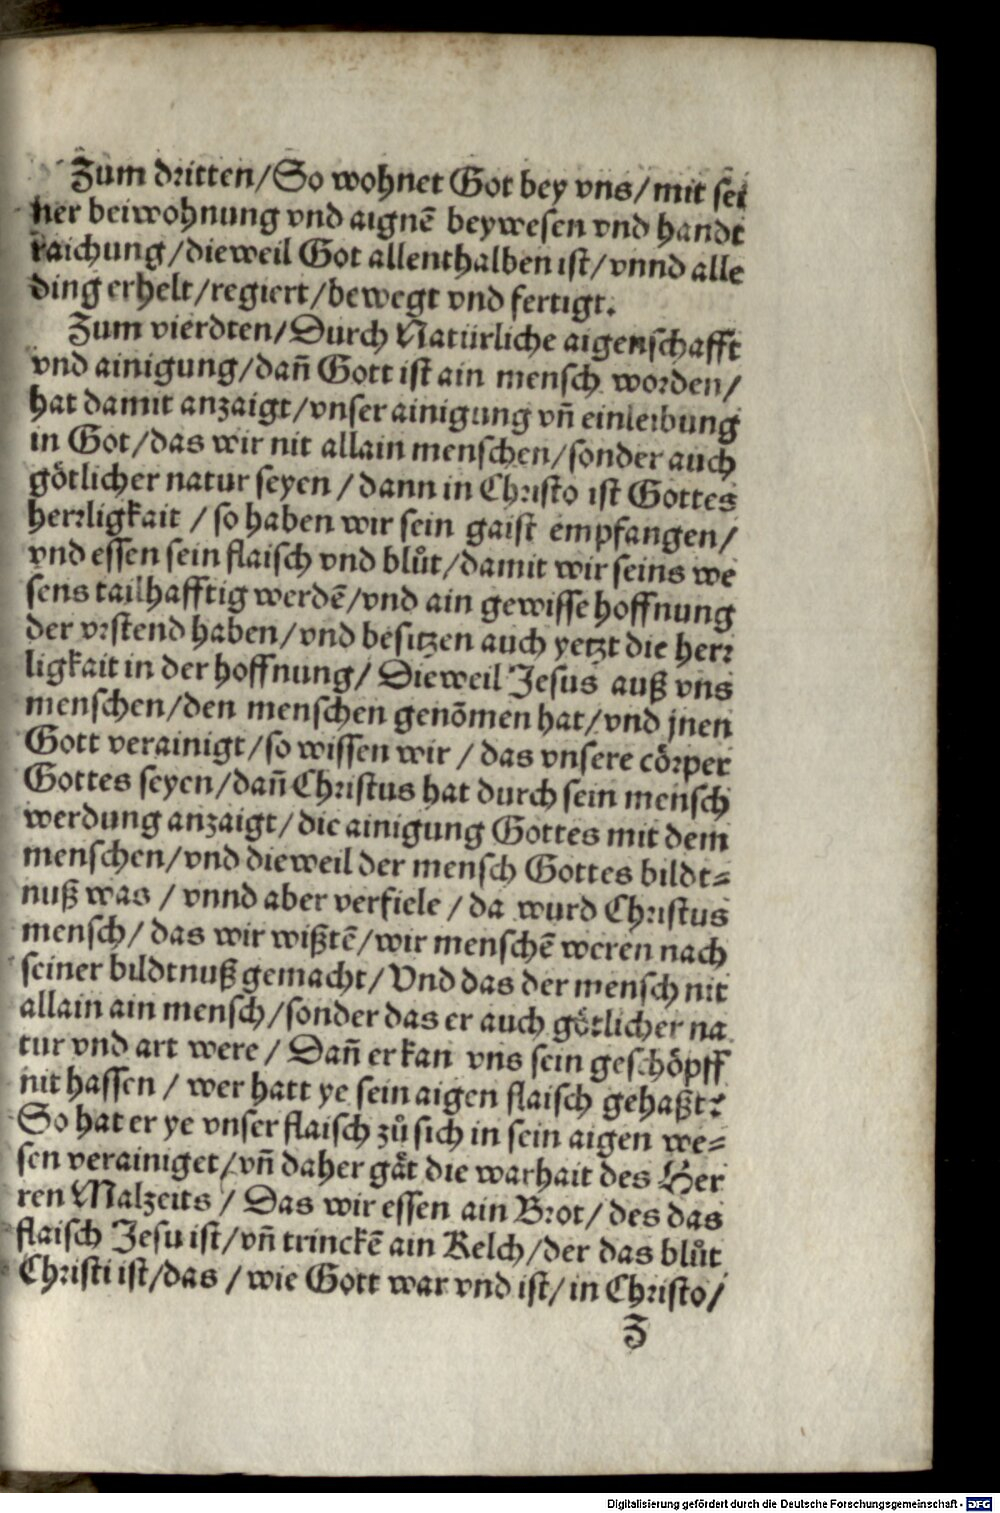 Zum dritten/So wohnet Got bey vns/mit sei
ner beiwohnung vnd aignē beywesen vnd handt
raichung/dieweil Got allenthalben ist/vnnd alle
ding erhelt/regiert/bewegt vnd fertigt.
Zum vierdten/Durch Natürliche aigenschafft
vnd ainigung/dañ Gott ist ain mensch worden/
hat damit anzaigt/vnser ainigung vñ einleibung
in Got/das wir nit allain menschen/sonder auch
götlicher natur seyen/dann in Christo ist Gottes
herrligkait/so haben wir sein gaist empfangen/
vnd essen sein flaisch vnd blůt/damit wir seins we
sens tailhafftig werdē/vnd ain gewisse hoffnung
der vrstend haben/vnd besitzen auch yetzt die herr
ligkait in der hoffnung/Dieweil Jesus auß vns
menschen/den menschen genōmen hat/vnd jnen
Gott verainigt/so wissen wir/das vnsere cörper
Gottes seyen/dañ Christus hat durch sein mensch
werdung anzaigt/die ainigung Gottes mit dem
menschen/vnd dieweil der mensch Gottes bildt⸗
nuß was/vnnd aber verfiele/da wurd Christus
mensch/das wir wißtē/wir menschē weren nach
seiner bildtnuß gemacht/Vnd das der mensch nit
allain ain mensch/sonder das er auch götlicher na
tur vnd art were/Dañ er kan vns sein geschöpff
nit hassen/wer hatt ye sein aigen flaisch gehaßt?
So hat er ye vnser flaisch zů sich in sein aigen we⸗
sen verainiget/vñ daher gåt die warhait des Her
ren Malzeits/Das wir essen ain Brot/des das
flaisch Jesu ist/vñ trinckē ain Kelch/der das blůt
Christi ist/das/wie Gott war vnd ist/in Christo/
Z
Digitalisierung gefördert durch die Deutsche Forschungsgemeinschaft - DFG